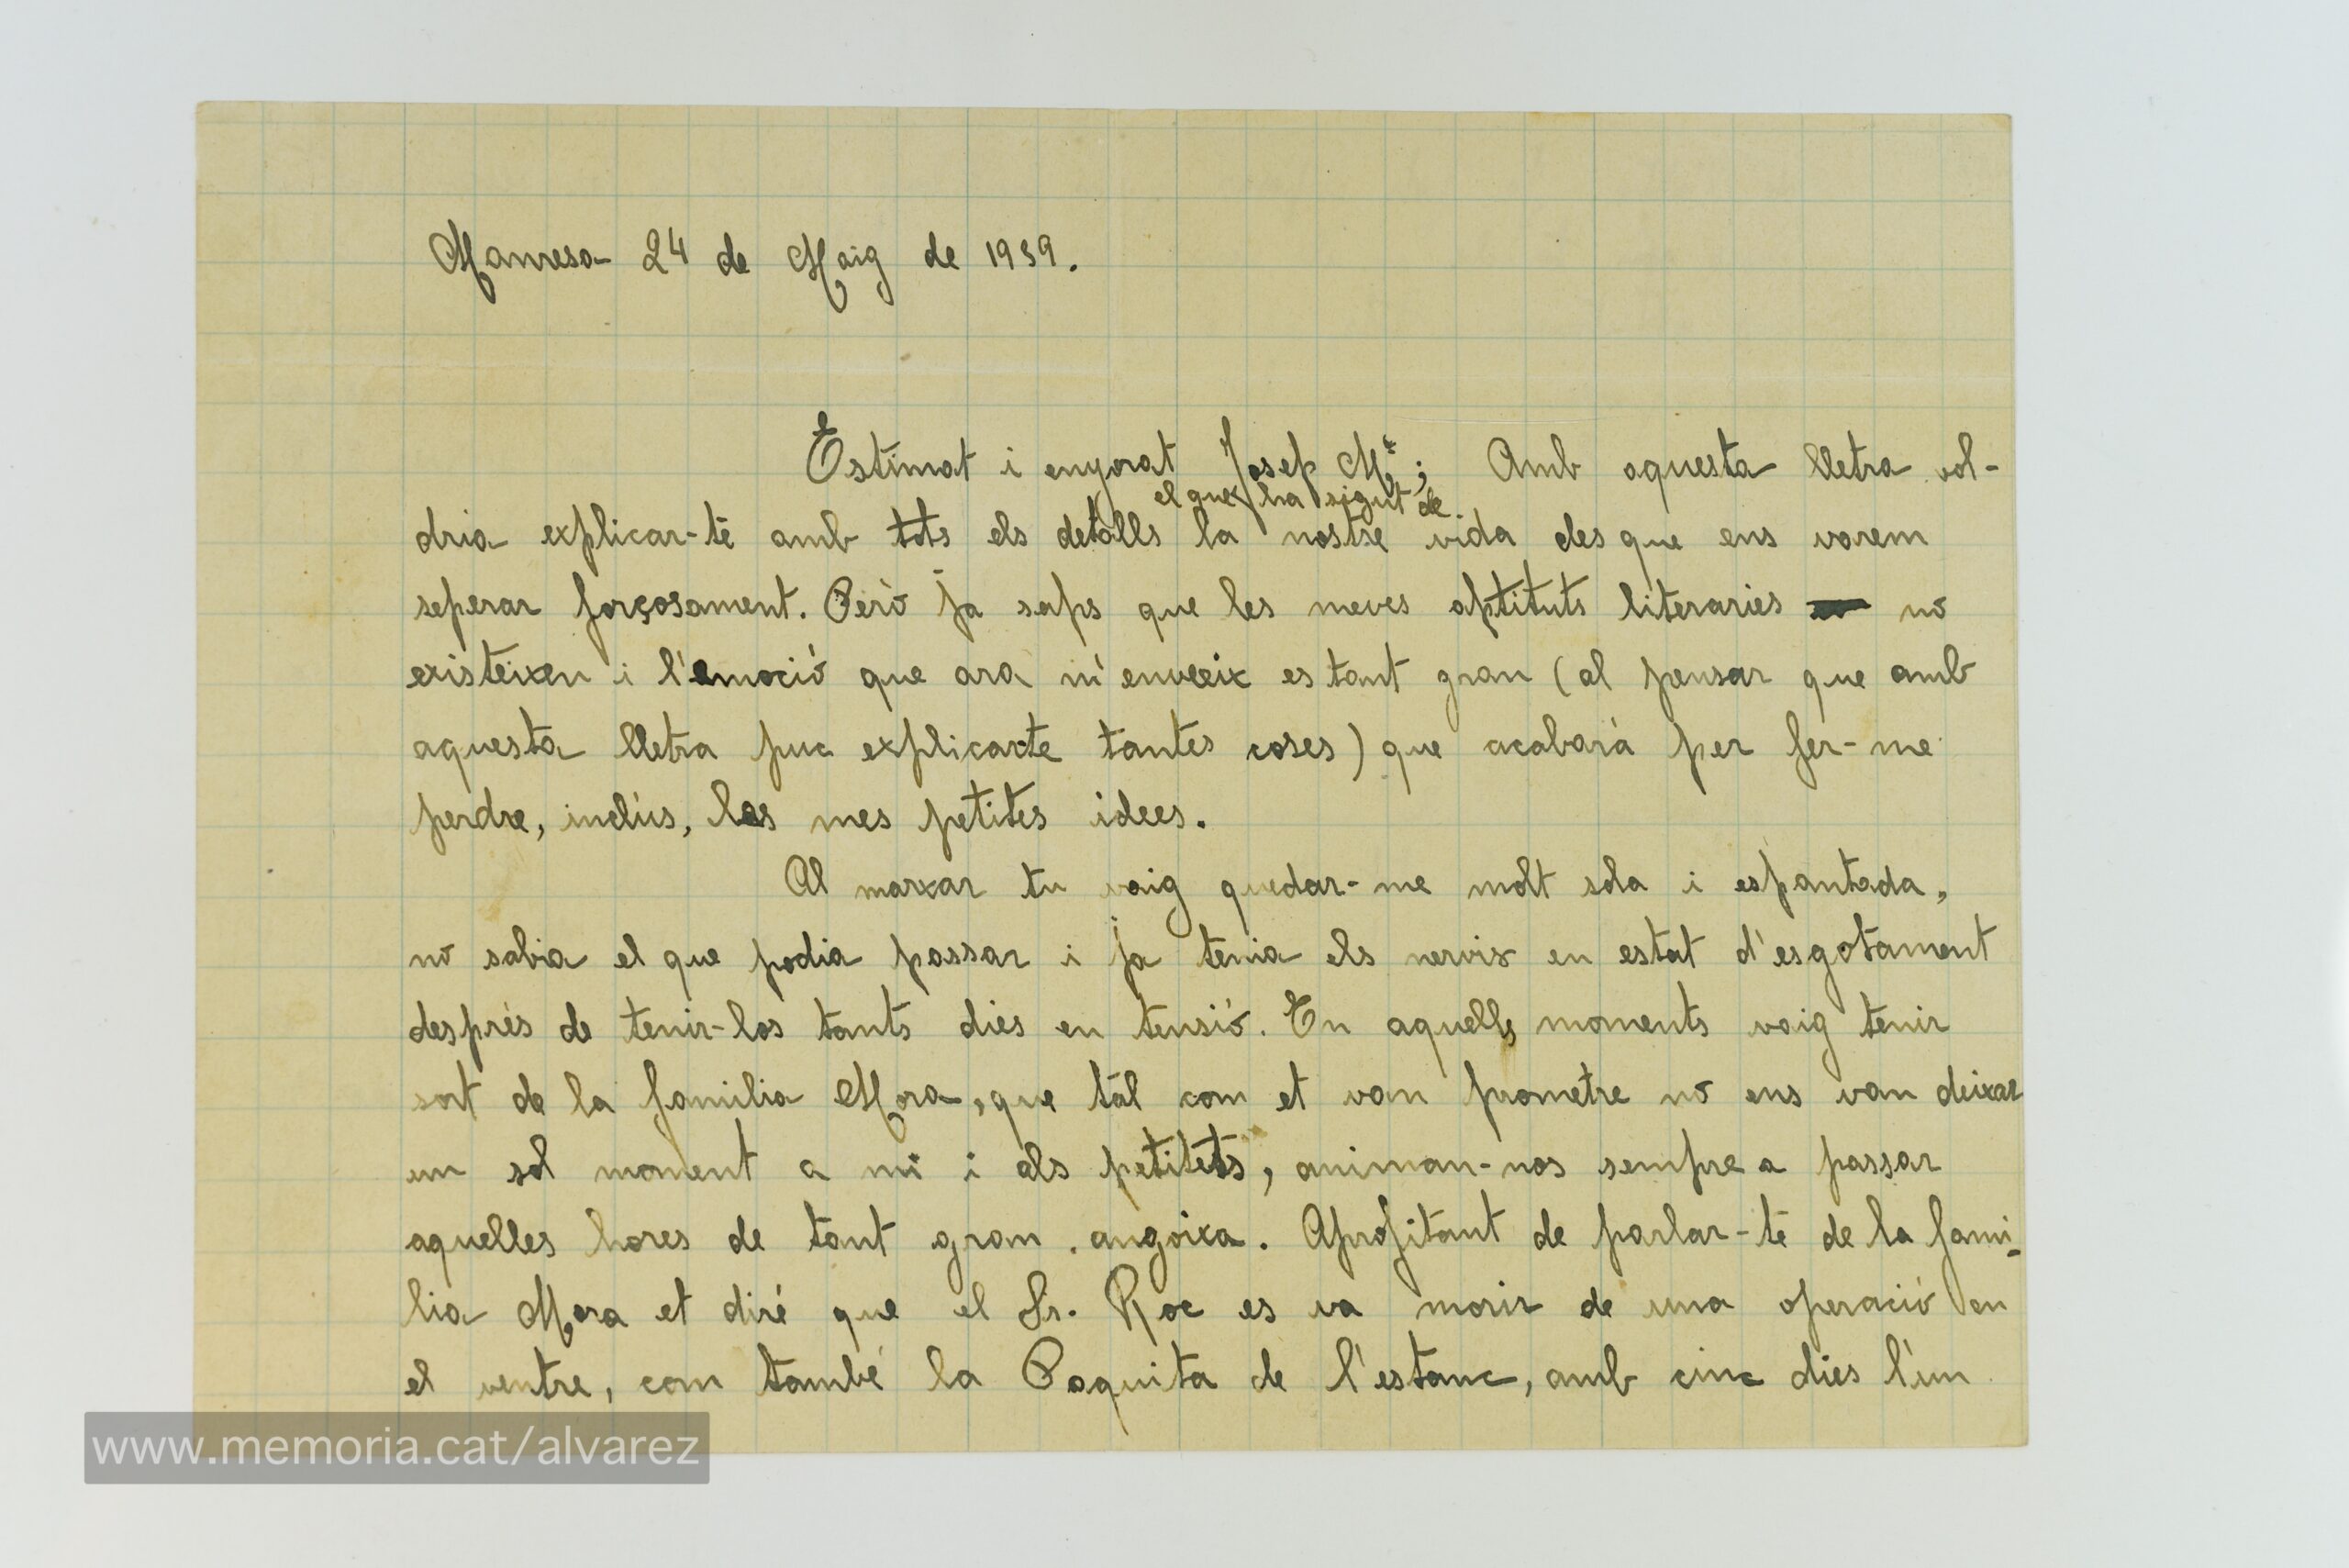 Manresa 24 de Maig de 1939.
Estimat i enyorat Josep Mª; Amb aquesta lletra vol-
el que ha sigut de
dria explicar-te amb tots els detalls la nostre vida des que ens varem
seperar forçosament. Però ja saps que les meves aptituts literaries no
existeixen i l'emoció que ara m'enveeix es tant gran (al pensar que amb
aquesta lletra puc explicarte tantes coses) que acabará per fer-me
perdre, inclús, les mes petites idees.
Al marxar tu vaig quedar-me molt sola i espantada,
no sabia el que podia passar i ja tenia els nervis en estat d'esgotament
desprès de tenir-los tants dies en tensió. En aquells moments vaig tenir
sort de la familia Mora, que tal com et van prometre no ens van deixar
un sol moment a mi i als petitets, animan-nos sempre a passar
aquelles hores de tant gran angoixa. Aprofitant de parlar-te de la fami-
lia Mora et diré que el Sr. Roc es va morir de una operació en
el ventre, com també la Paquita de l'estanc, amb cinc dies l'un
www.memoria.cat/alvarez